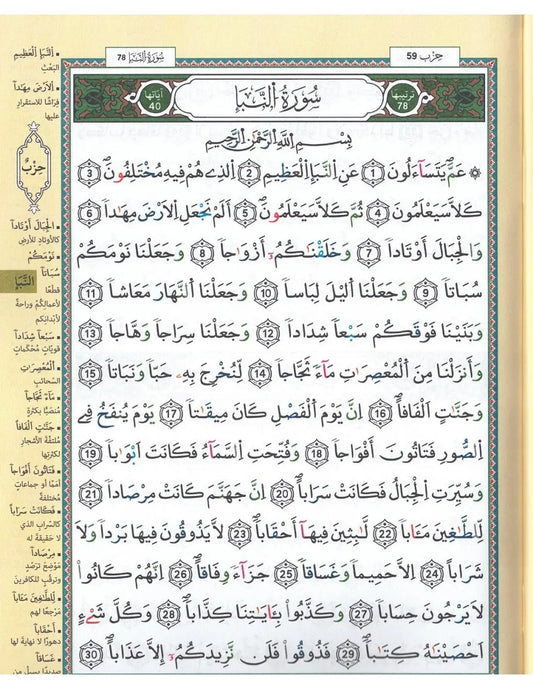 حِزْب 59
سُورَةُ النَّبَإِ 78
ترتيبها 78
سُورَةُ النَّبَإِ
آياتها 40
بِسْمِ اللَّهِ الرَّحْمَٰنِ الرَّحِيمِ
۞ عَمَّ يَتَسَآءَلُونَ 1 عَنِ اِ۬لنَّبَإِ اِ۬لْعَظِيمِ 2 اِ۬لذِے هُمْ فِيهِ مُخْتَلِفُونَ 3
كَلَّا سَيَعْلَمُونَ 4 ثُمَّ كَلَّا سَيَعْلَمُونَ 5 أَلَمْ نَجْعَلِ اِ۬لَارْضَ مِهَٰداٗ 6
وَالْجِبَالَ أَوْتَاداٗ 7 وَخَلَقْنَٰكُمُۥٓ أَزْوَٰجاٗ 8 وَجَعَلْنَا نَوْمَكُمْ
سُبَاتاٗ 9 وَجَعَلْنَا اَ۬ليْلَ لِبَاساٗ 10 وَجَعَلْنَا اَ۬لنَّهَارَ مَعَاشاٗ 11
وَبَنَيْنَا فَوْقَكُمْ سَبْعاٗ شِدَاداٗ 12 وَجَعَلْنَا سِرَاجاٗ وَهَّاجاٗ 13
وَأَنزَلْنَا مِنَ اَ۬لْمُعْصِرَٰتِ مَآءٗ ثَجَّاجاٗ 14 لِّنُخْرِجَ بِهِۦ حَبّاٗ وَنَبَاتاٗ 15
وَجَنَّٰتٍ اَلْفَافاً 16 اِنَّ يَوْمَ اَ۬لْفَصْلِ كَانَ مِيقَٰتاٗ 17 يَوْمَ يُنفَخُ فِے
اِ۬لصُّورِ فَتَاتُونَ أَفْوَاجاٗ 18 وَفُتِّحَتِ اِ۬لسَّمَآءُ فَكَانَتَ اَبْوَٰباٗ 19
وَسُيِّرَتِ اِ۬لْجِبَالُ فَكَانَتْ سَرَاباً 20 اِنَّ جَهَنَّمَ كَانَتْ مِرْصَاداٗ 21
لِّلطَّٰغِينَ مَـَٔاباٗ 22 لَّٰبِثِينَ فِيهَآ أَحْقَاباٗ 23 لَّا يَذُوقُونَ فِيهَا بَرْداٗ وَلَا
شَرَاباً 24 اِلَّا حَمِيماٗ وَغَسَاقاٗ 25 جَزَآءٗ وِفَاقاً 26 اِنَّهُمْ كَانُواْ
لَا يَرْجُونَ حِسَاباٗ 27 وَكَذَّبُواْ بِـَٔايَٰتِنَا كِذَّاباٗ 28 وَكُلَّ شَےْءٍ
اَحْصَيْنَٰهُ كِتَٰباٗ 29 فَذُوقُواْ فَلَن نَّزِيدَكُمُۥٓ إِلَّا عَذَاباً 30
▪ اِ۬لنَّبَإِ اِ۬لْعَظِيمِ
البَعْثِ
▪ اَ۬لَارْضَ مِهَٰداٗ
فِرَاشًا للاستقرارِ
عليها
حِزْبٌ
▪ اَ۬لْجِبَالَ أَوْتَاداٗ
كالأوتادِ للأرضِ
▪ نَوْمَكُمْ
سُبَاتاٗ
النَّبَإ
قَطْعًا
لأعمالِكُمْ وراحةً
لأبْدانِكم
▪ سَبْعاٗ شِدَاداٗ
قوِيّاتٍ مُحْكَماتٍ
▪ اَ۬لْمُعْصِرَٰتِ
السحائبِ
▪ مَآءٗ ثَجَّاجاٗ
مُنصَبًّا بكثرةٍ
▪ جَنَّٰتٍ اَلْفَافاً
مُلتَفَّةَ الأشجارِ
لكثرتِها
▪ فَتَاتُونَ أَفْوَاجاٗ
أُمَمًا أو جماعاتٍ
مُختلفةً
▪ فَكَانَتْ سَرَاباً
كالسرابِ الذي
لا حَقيقةَ له
▪ مِرْصَاداٗ
مَوْضعَ تَرَصُّدٍ
وترقُّبٍ للكافرينَ
▪ لِّلطَّٰغِينَ مَـَٔاباٗ
مَرْجعًا لهم
▪ أَحْقَاباٗ
دهورًا لا نهايةَ لها
▪ غَسَاقاٗ
صديدًا يسيل من